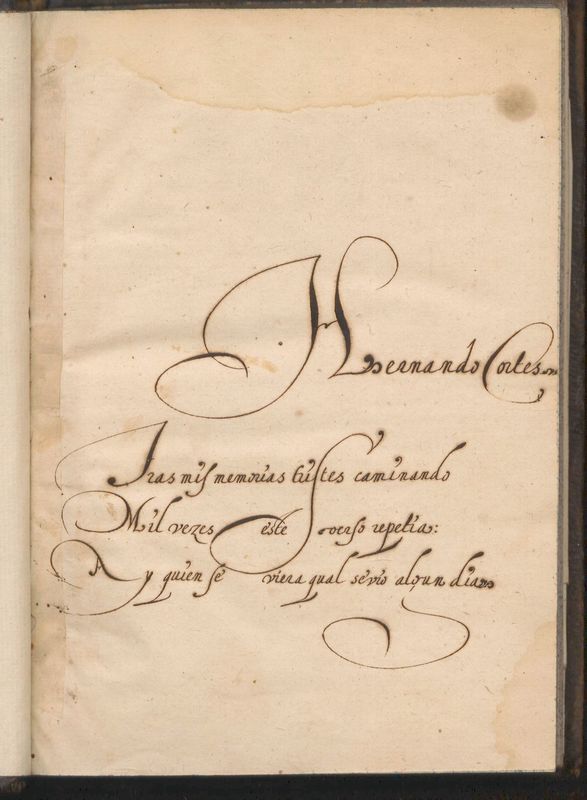 Hernando Cortes
Tras mis memorias tristes caminando
Mil vezes este verso repetia:
Ay quien se viera qual se vio algun dia